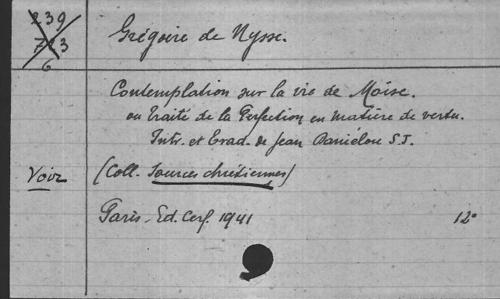 239
723
6
Grégoire de Nysse.
Contemplation sur la vie de Moïse.
ou Traité de la Perfection en matière de vertu.
Intr. et trad. de Jean Daniélou S.J.
Voir
(Coll. Sources chrétiennes)
Paris. Ed. Cerf. 1941 12°